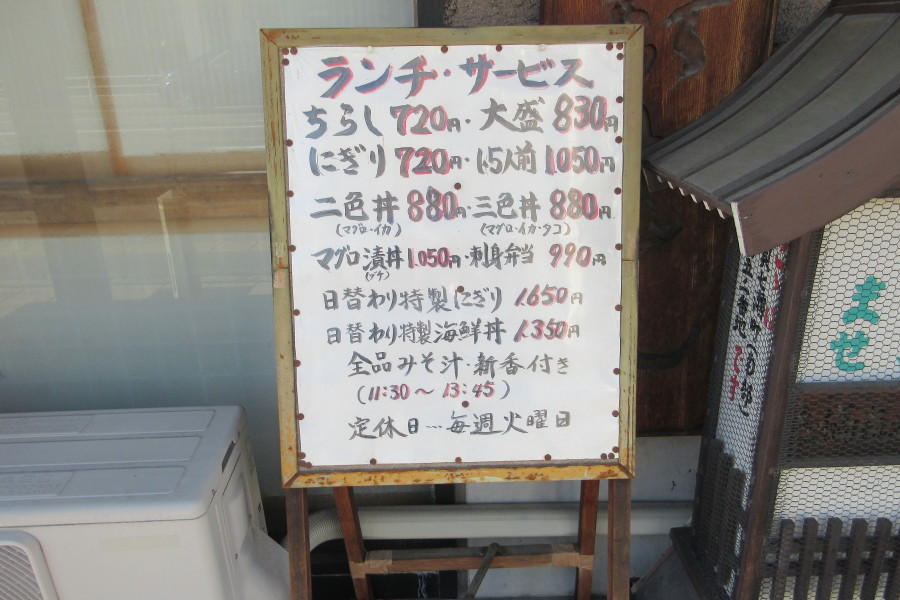 ランチ・サービス
ちらし 720円・大盛 830円
にぎり 720円・1.5人前 1.050円
二色丼 880円・三色丼 880円
(マグロ・イカ) (マグロ・イカ・タコ)
マグロ漬丼 1.050円・刺身弁当 990円
(ヅケ)
日替わり特製にぎり 1.650円
日替わり特製海鮮丼 1.350円
全品みそ汁・新香付き
(11:30～13:45)
定休日…毎週火曜日
ませ
です